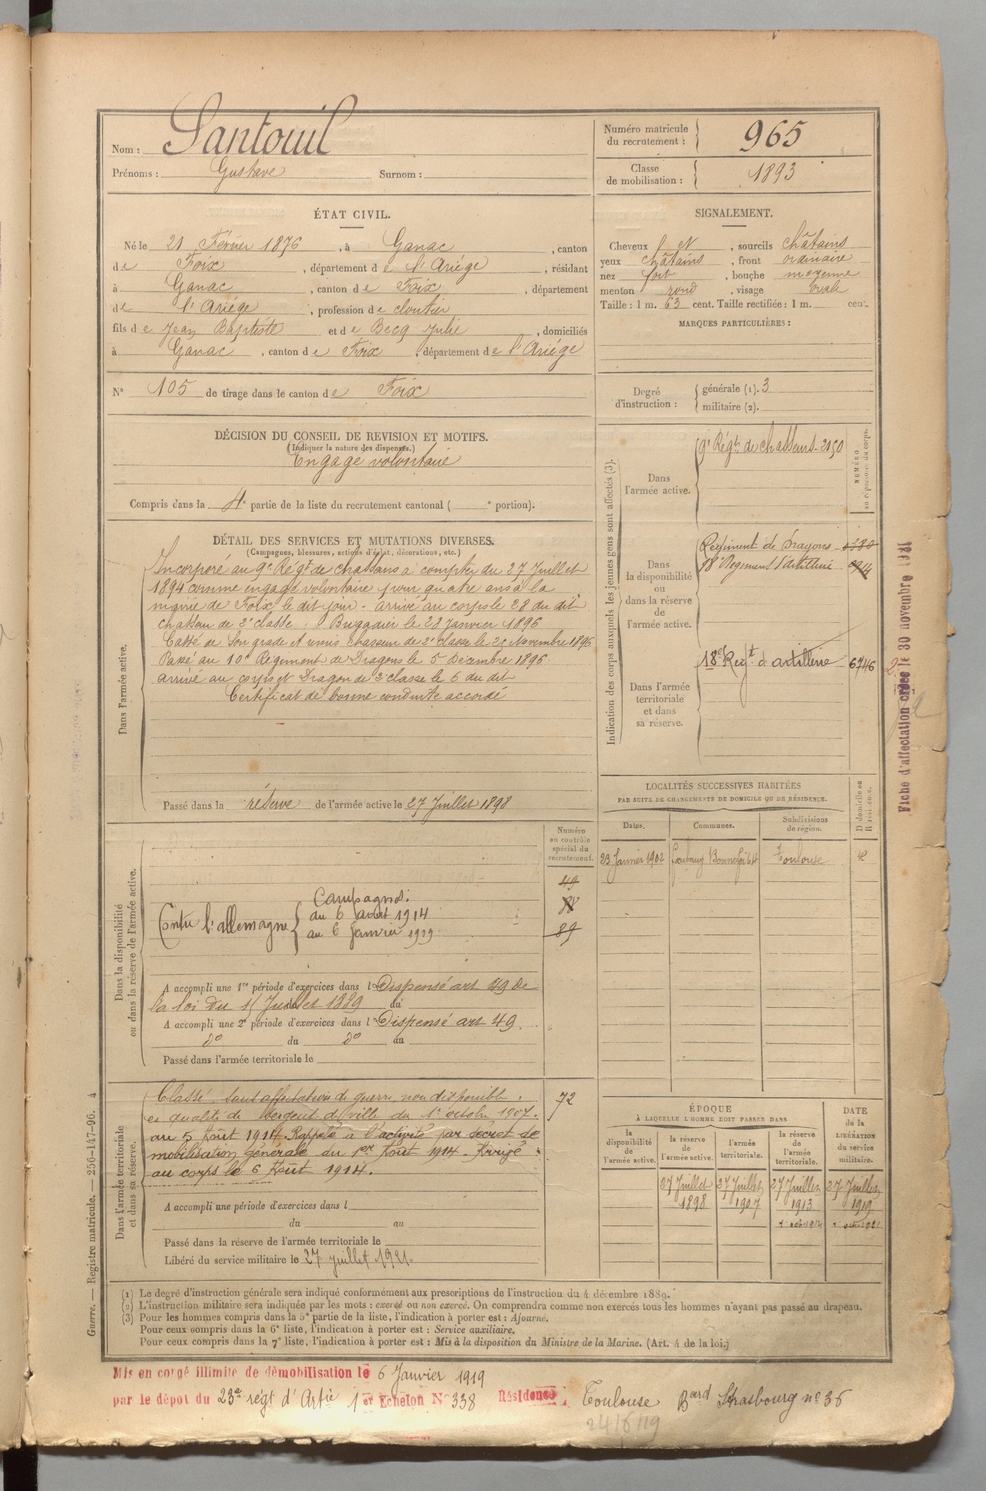 Nom : Santouil
Prénoms : Gustave Surnom :
Numéro matricule du recrutement : 965
Classe de mobilisation : 1893
ÉTAT CIVIL.
Né le 21 Février 1876, à Ganac, canton
de Foix, département de l'Ariége, résidant
à Ganac, canton de Foix, département
de l'Ariége, profession de cloutier
fils de Jean Baptiste et de Becq Julie, domiciliés
à Ganac, canton de Foix, département de l'Ariége
N° 105 de tirage dans le canton de Foix
SIGNALEMENT.
Cheveux, sourcils châtains
yeux châtains, front ordinaire
nez fort, bouche moyenne
menton rond, visage ovale
Taille : 1 m. 63 cent. Taille rectifiée : 1 m. cent.
MARQUES PARTICULIÈRES :
Degré d'instruction : générale (1). 3
militaire (2).
DÉCISION DU CONSEIL DE REVISION ET MOTIFS.
(Indiquer la nature des dispenses.)
Engagé volontaire
Compris dans la 4e partie de la liste du recrutement cantonal ( e portion).
DÉTAIL DES SERVICES ET MUTATIONS DIVERSES.
(Campagnes, blessures, actions d'éclat, décorations, etc.)
Dans l'armée active.
Incorporé au 9e Régt de chasseurs à compter du 27 Juillet
1894 comme engagé volontaire pour quatre ans à la
mairie de Foix le dit jour. arrivé au corps le 28 du dit
chasseur de 2e classe. Brigadier le 23 Janvier 1896
Cassé de son grade et remis chasseur de 2e classe le 25 Novembre 1896
Passé au 10e Régiment de Dragons le 5 Décembre 1896
arrivé au corps et Dragon de 2e classe le 6 du dit
Certificat de bonne conduite accordé
Passé dans la réserve de l'armée active le 27 Juillet 1898
Indication des corps auxquels les jeunes gens sont affectés (3).
NUMÉRO au répertoire du corps.
Dans l'armée active.
9e Régt de chasseurs 2150
Dans la disponibilité ou dans la réserve de l'armée active.
Régiment de Dragons
18e Régiment d'artillerie
Dans l'armée territoriale et dans sa réserve.
18e Regt d'artillerie 6746
Fiche d'affectation créée le 30 novembre
LOCALITÉS SUCCESSIVES HABITÉES
PAR SUITE DE CHANGEMENTS DE DOMICILE OU DE RÉSIDENCE.
Dates. Communes. Subdivisions de région. D domicile ou R résidence.
23 Janvier 1902 Toulouse
Dans la disponibilité ou dans la réserve de l'armée active.
Numéro au contrôle spécial du recrutement.
49
88
89
Campagnes :
Contre l'allemagne { du 6 août 1914
au 6 janvier 1919
A accompli une 1re période d'exercices dans l Dispensé art 49 de
la loi du 15 Juillet 1889 du au
A accompli une 2e période d'exercices dans l Dispensé art 49.
do du do au
Passé dans l'armée territoriale le
Dans l'armée territoriale et dans sa réserve.
Classé sans affectation de guerre, non disponible, 72
es qualité de Sergent de ville du 1er octobre 1907.
au 5 Août 1914. Rappelé à l'activité par décret de
mobilisation générale du 1er Août 1914. Dirigé
au corps le 6 Août 1914.
A accompli une période d'exercices dans l
du au
Passé dans la réserve de l'armée territoriale le
Libéré du service militaire le 27 juillet 1921.
ÉPOQUE
À LAQUELLE L'HOMME DOIT PASSER DANS
la disponibilité de l'armée active. la réserve de l'armée active. l'armée territoriale. la réserve de l'armée territoriale. DATE de la LIBÉRATION du service militaire.
27 Juillet 1898 27 Juillet 1907 27 Juillet 1913 27 Juillet 1919
(1) Le degré d'instruction générale sera indiqué conformément aux prescriptions de l'instruction du 4 décembre 1889.
(2) L'instruction militaire sera indiquée par les mots : exercé ou non exercé. On comprendra comme non exercés tous les hommes n'ayant pas passé au drapeau.
(3) Pour les hommes compris dans la 5e partie de la liste, l'indication à porter est : Ajourné.
Pour ceux compris dans la 6e liste, l'indication à porter est : Service auxiliaire.
Pour ceux compris dans la 7e liste, l'indication à porter est : Mis à la disposition du Ministre de la Marine. (Art. 4 de la loi.)
Guerre. — Registre matricule. — 256-147-96. 4
Mis en congé illimité de démobilisation le 6 Janvier 1919
par le dépôt du 23e régt d'Artie 1er Echelon N° 338 Résidence Toulouse Bard Strasbourg no 36
24/6/19